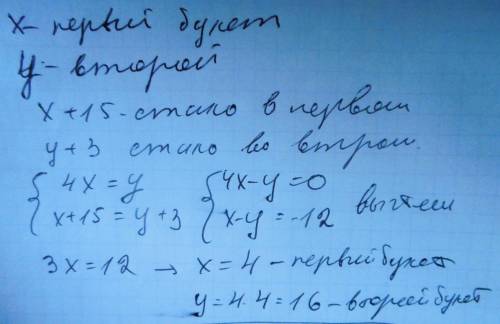 x - первый букет
y - второй
x + 15 - стало в первом
y + 3 стало во втором.
{ 4x = y { 4x - y = 0
{ x + 15 = y + 3 { x - y = -12 вычтем
3x = 12 → x = 4 - первый букет
y = 4.4 = 16 - второй букет